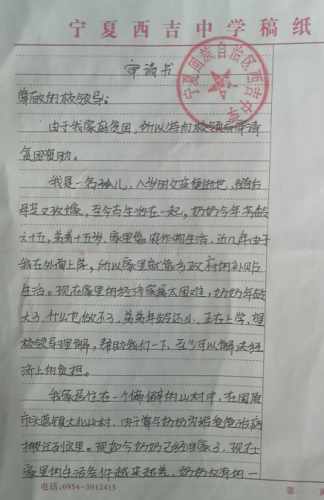 宁夏西吉中学稿纸
宁夏回族自治区西吉中学
申请书
尊敬的校领导：
由于我家庭贫困，所以特向校领导申请
贫困资助。
我是一名孤儿，八岁时父亲便逝世，随后
母亲又改嫁，至今与奶奶生活在一起，奶奶今年高龄
六十五，弟弟十五岁，家里靠农作物生活，近几年由于
我在外面上学，所以家里就靠政府的补贴
生活。现在家里的经济实在太困难，奶奶年龄
大了，什么也做不了，弟弟年龄还小，正在上学，望
校领导理解，帮助我们一下，至少可以解决经
济上的负担。
我家居住在一个偏僻的山村中，在固原
市 镇大北山村，由于曾与奶奶 爸爸治病
搬迁到这里。现如今奶奶已经 家了，现在
家里的生活条件越来越差，奶奶仅有的一
电话：0954-3012415
第